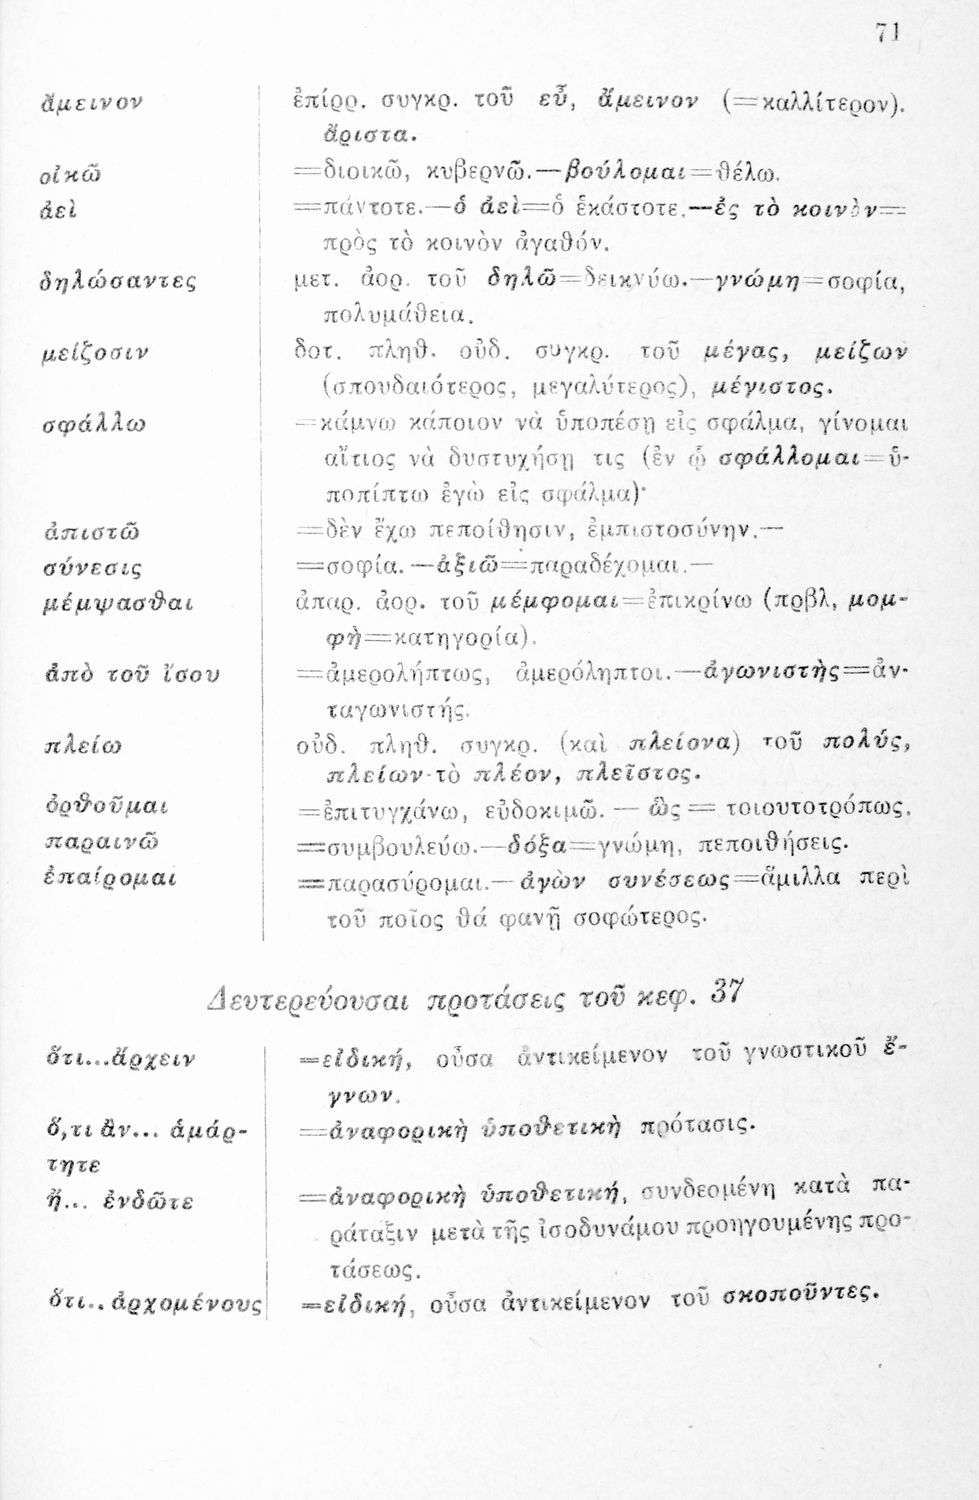 71
ἄμεινον ἐπίρρ. συγκρ. τοῦ εὖ, ἄμεινον (=καλλίτερον).
ἄριστα.
οἰκῶ =διοικῶ, κυβερνῶ.—βούλομαι=θέλω.
ἀεὶ =πάντοτε.—ὁ ἀεὶ=ὁ ἑκάστοτε.—ἐς τὸ κοινὸν=
πρὸς τὸ κοινὸν ἀγαθόν.
δηλώσαντες μετ. ἀορ. τοῦ δηλῶ=δεικνύω.—γνώμη=σοφία,
πολυμάθεια.
μείζοσιν δοτ. πληθ. οὐδ. συγκρ. τοῦ μέγας, μείζων
(σπουδαιότερος, μεγαλύτερος), μέγιστος.
σφάλλω =κάμνω κάποιον νὰ ὑποπέσῃ εἰς σφάλμα, γίνομαι
αἴτιος νὰ δυστυχήσῃ τις (ἐν ᾧ σφάλλομαι=ὑ-
ποπίπτω ἐγὼ εἰς σφάλμα)·
ἀπιστῶ =δὲν ἔχω πεποίθησιν, ἐμπιστοσύνην.—
σύνεσις =σοφία.—ἀξιῶ=παραδέχομαι.—
μέμψασθαι ἀπαρ. ἀορ. τοῦ μέμφομαι=ἐπικρίνω (πρβλ, μομ-
φὴ=κατηγορία).
ἀπὸ τοῦ ἴσου =ἀμερολήπτως, ἀμερόληπτοι.—ἀγωνιστὴς=ἀν-
ταγωνιστής.
πλείω οὐδ. πληθ. συγκρ. (καὶ πλείονα) τοῦ πολύς,
πλείων-τὸ πλέον, πλεῖστος.
ὀρθοῦμαι =ἐπιτυγχάνω, εὐδοκιμῶ. — ὣς = τοιουτοτρόπως.
παραινῶ =συμβουλεύω.—δόξα=γνώμη, πεποιθήσεις.
ἐπαίρομαι =παρασύρομαι.—ἀγὼν συνέσεως=ἅμιλλα περὶ
τοῦ ποῖος θά φανῇ σοφώτερος.
Δευτερεύουσαι προτάσεις τοῦ κεφ. 37
ὅτι...ἄρχειν =εἰδική, οὖσα ἀντικείμενον τοῦ γνωστικοῦ ἔ-
γνων.
ὅ,τι ἂν... ἁμάρ- =ἀναφορικὴ ὑποθετικὴ πρότασις.
τητε
ἤ... ἐνδῶτε =ἀναφορικὴ ὑποθετική, συνδεομένη κατὰ πα-
ράταξιν μετὰ τῆς ἰσοδυνάμου προηγουμένης προ-
τάσεως.
ὅτι.. ἀρχομένους =εἰδική, οὖσα ἀντικείμενον τοῦ σκοποῦντες.